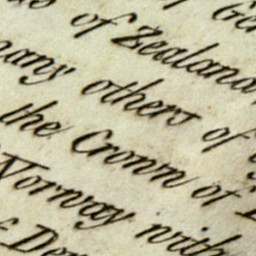 of Zealand
many others of
the Crown of
Norway with